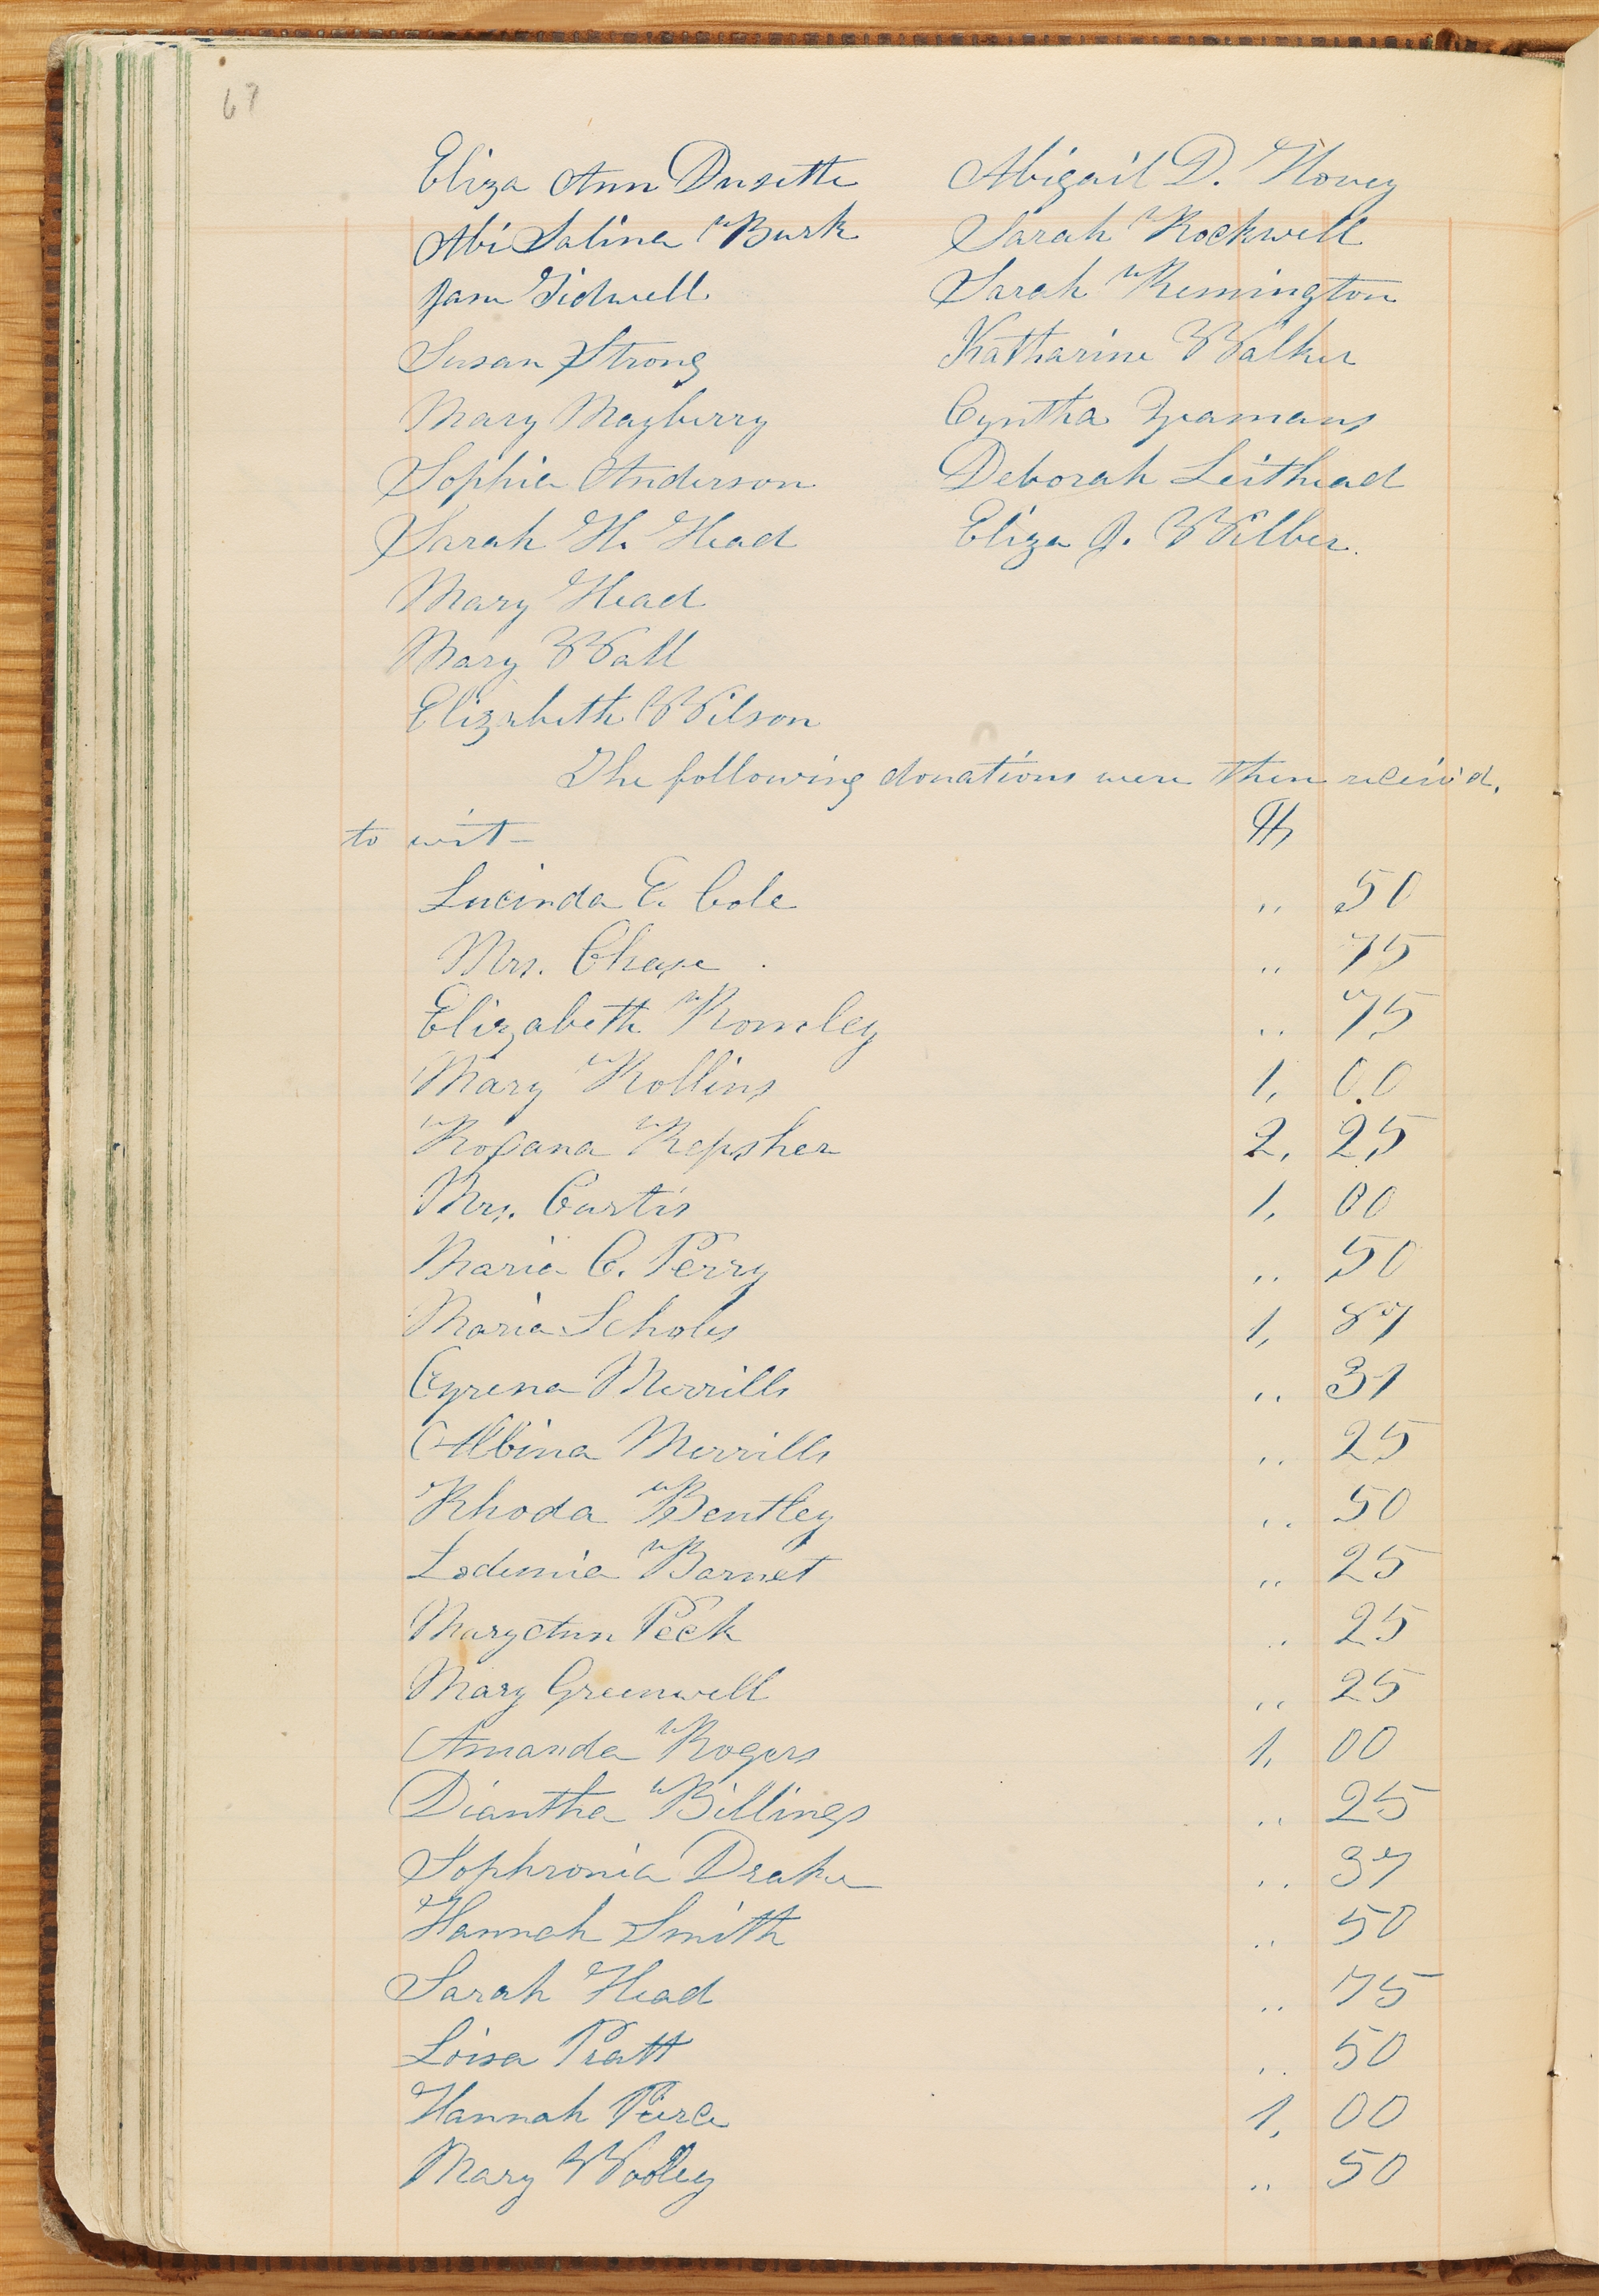 67
Eliza Ann Dusette Abigail D. Hovey
Abi Salina Burk Sarah Rockwell
Jane Tidwell Sarah Remington
Susan Strong Katharine Walker
Mary Mayberry Cyntha Yeamans
Sophia Anderson Deborah Leithead
Sarah H. Head Eliza J. Wilber.
Mary Head
Mary Wall
Elizabeth Wilson
The following donations were then receiv'd,
to wit-
Lucinda E. Cole " 50
Mrs. Chase " 75
Elizabeth Romley " 75
Mary Rollins 1, 00
Roxana Repsher 2, 25
Mrs. Curtis 1, 00
Maria C. Perry " 50
Maria Scholes 1, 87
Cyrena Merrills " 31
Albina Merrills " 25
Rhoda Bentley " 50
Lodemia Barnet " 25
Maryann Peck " 25
Mary Greenwell " 25
Amanda Rogers 1, 00
Diantha Billings " 25
Sophronia Drake " 37
Hannah Smith " 50
Sarah Head " 75
Loisa Pratt " 50
Hannah Peirce 1, 00
Mary Wooley " 50